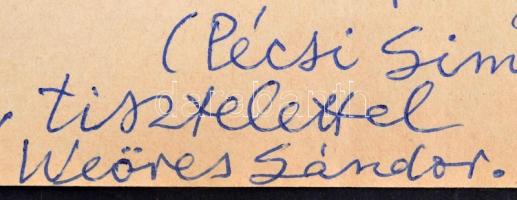 (Pécsi Sim
tisztelettel
Weöres Sándor.